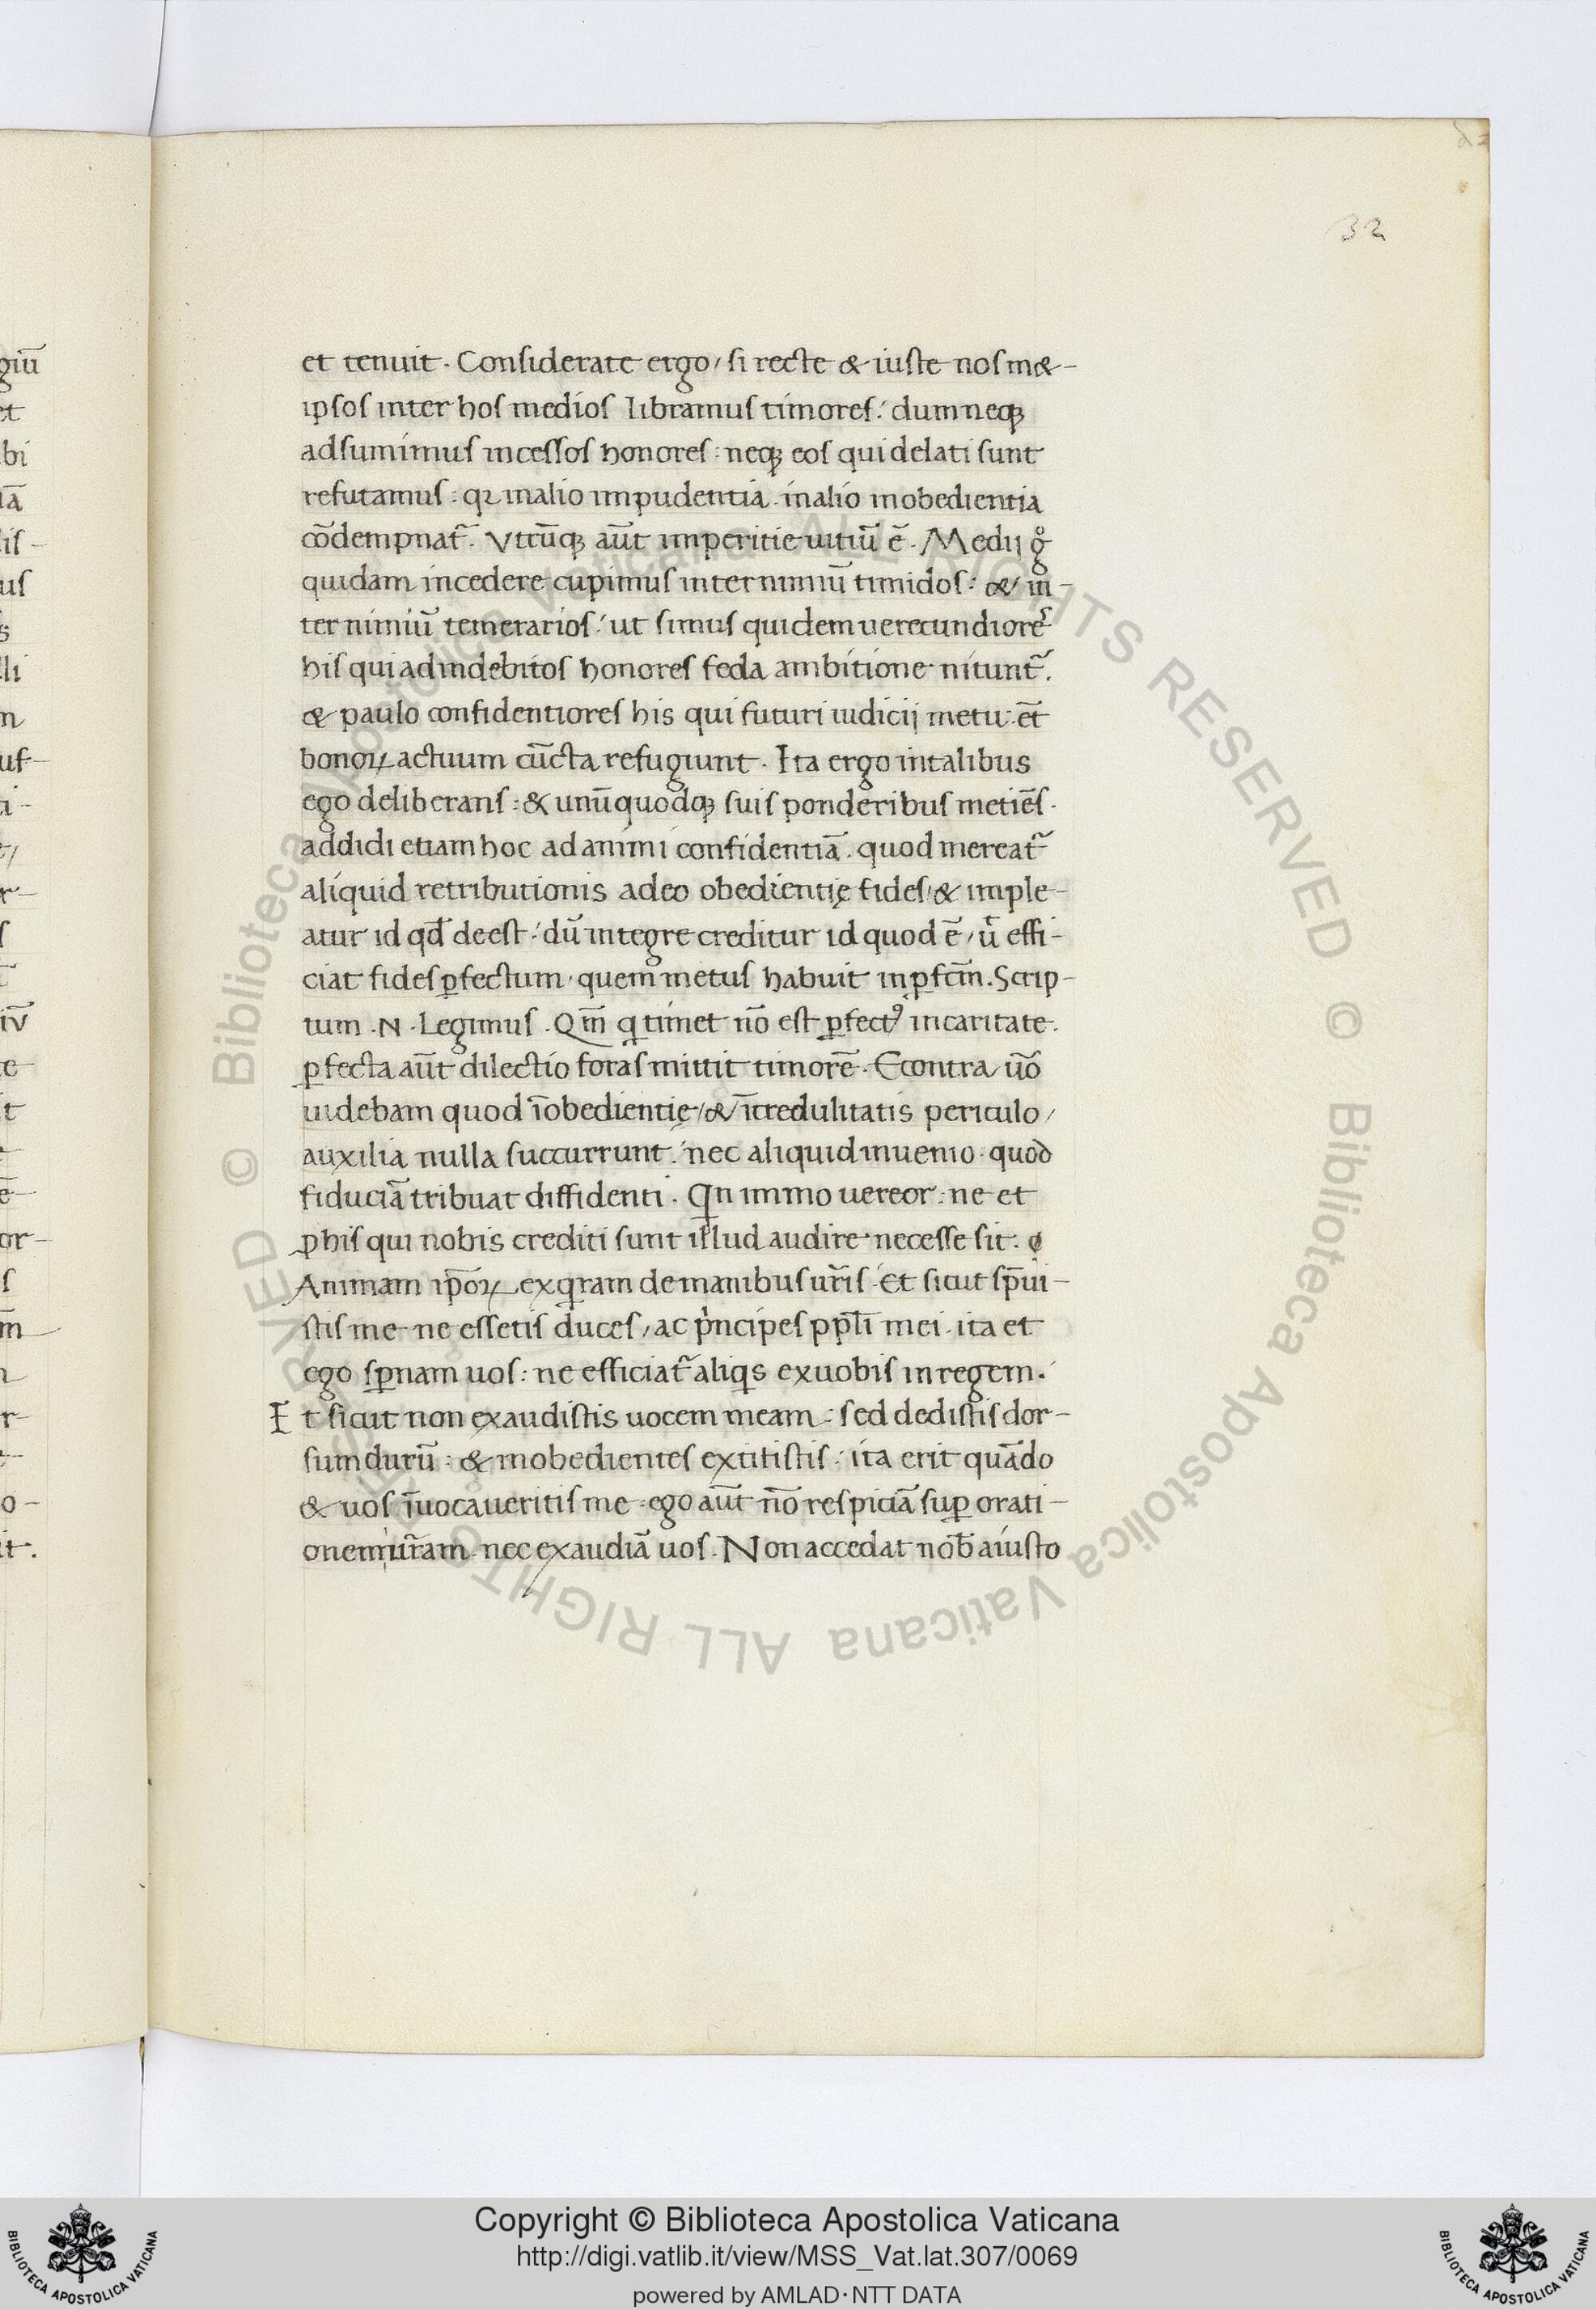 32
et tenuit. Considerate ergo/ si recte & iuste nosm&-
ipsos inter hos medios libramus timores: dum neqꝫ
adsumimus incessos honores: neqꝫ eos qui delati sunt
refutamus: qꝛ inalio impudentia. inalio inobedientia
cōdempnat᷑. Vtrūqꝫ aūt imperitie uitiū ē. Medij gͦ
quidam incedere cupimus inter nimiū timidos: &/ in-
ter nimiū temerarios: ut simus quidem uerecundiores
his qui ad indebitos honores feda ambitione nitunt᷑.
& paulo confidentiores his qui futuri iudicij metu. et̄
bonoꝝ actuum cūcta refugiunt. Ita ergo intalibus
ego deliberans: & unūquodqꝫ suis ponderibus metiēs.
addidi etiam hoc ad animi confidentiā. quod mereat᷑
aliquid retributionis adeo obedientię fides/ & imple-
atur id qd̄ deest: dū integre creditur id quod ē/ ut̄ effi-
ciat fides ꝑfectum, quem metus habuit inꝑfc̄m. Scrip-
tum .N. Legimus. Qm̄ q timet nō est ꝑfectꝰ in caritate.
ꝑfecta aūt dilectio foras mittit timorē. Econtra uō
uidebam quod īobedientię/ & īcredulitatis periculo/
auxilia nulla succurrunt: nec aliquid inuenio. quod
fiduciā tribuat diffidenti. Qn immo uereor: ne et
ꝓ his qui nobis crediti sunt illud audire necesse sit.
Animam ip̄oꝝ exqram de manibus ur̄is. Et sicut sp̄ui-
stis me ne essetis duces/ ac pncipes pp̄li mei. ita et
ego sꝑnam uos: ne efficiat᷑ aliqs exuobis in regem.
Et sicut non exaudistis uocem meam: sed dedistis dor-
sum durū: & inobedientes extitistis: ita erit quādo
& uos īuocaueritis me. ego aūt nō respiciā suꝑ orati-
onem ur̄am nec exaudiā uos. Non accedat nob̄ aiusto
Copyright © Biblioteca Apostolica Vaticana
http://digi.vatlib.it/view/MSS_Vat.lat.307/0069
powered by AMLAD·NTT DATA
BIBLIOTECA APOSTOLICA VATICANA
BIBLIOTECA APOSTOLICA VATICANA
© Biblioteca Apostolica Vaticana ALL RIGHTS RESERVED © Biblioteca Apostolica Vaticana ALL RIGHTS RESERVED